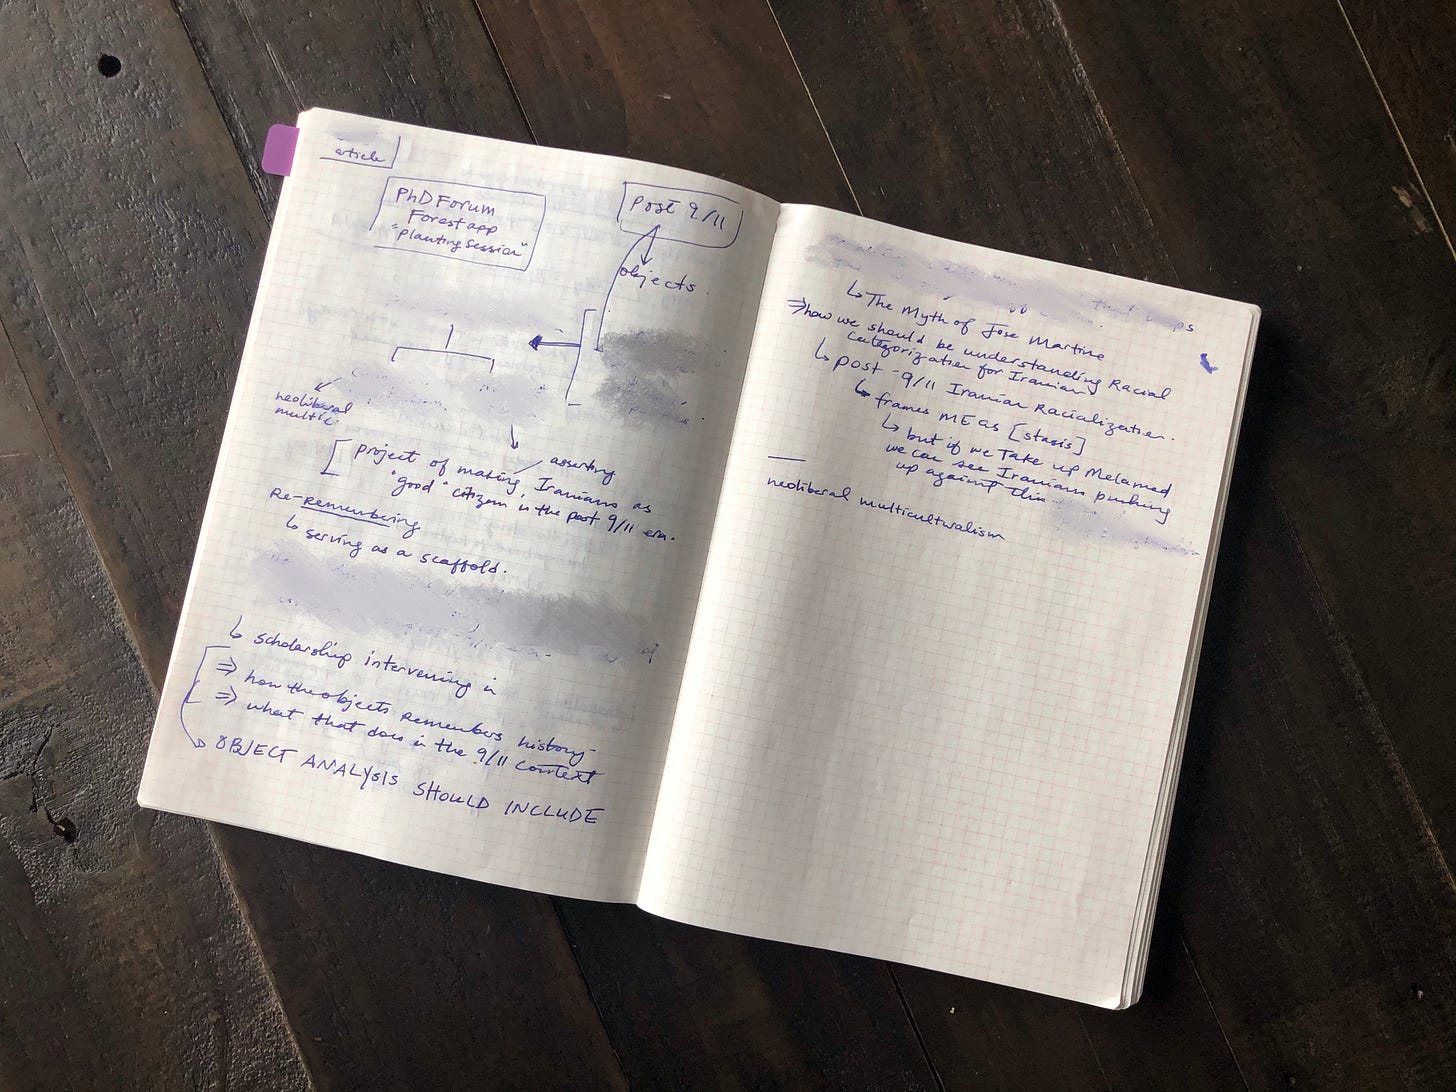 article
PhD Forum
Forest app
"planting session"
post 9/11
objects
neoliberal
multic.
project of making Iranians as
asserting
"good" citizens in the post 9/11 era.
Re-Remembering
↳ serving as a scaffold.
↳ scholarship intervening in
⇒ how the objects remembers history
⇒ what that does in the 9/11 context
OBJECT ANALYSIS SHOULD INCLUDE
↳ The Myth of Jose Martine
⇒ how we should be understanding Racial
categorization for Iranians
↳ post-9/11 Iranian Racialization.
↳ frames ME as [stasis]
↳ but if we take up Melamed
we can see Iranians pushing
up against this
neoliberal multiculturalism